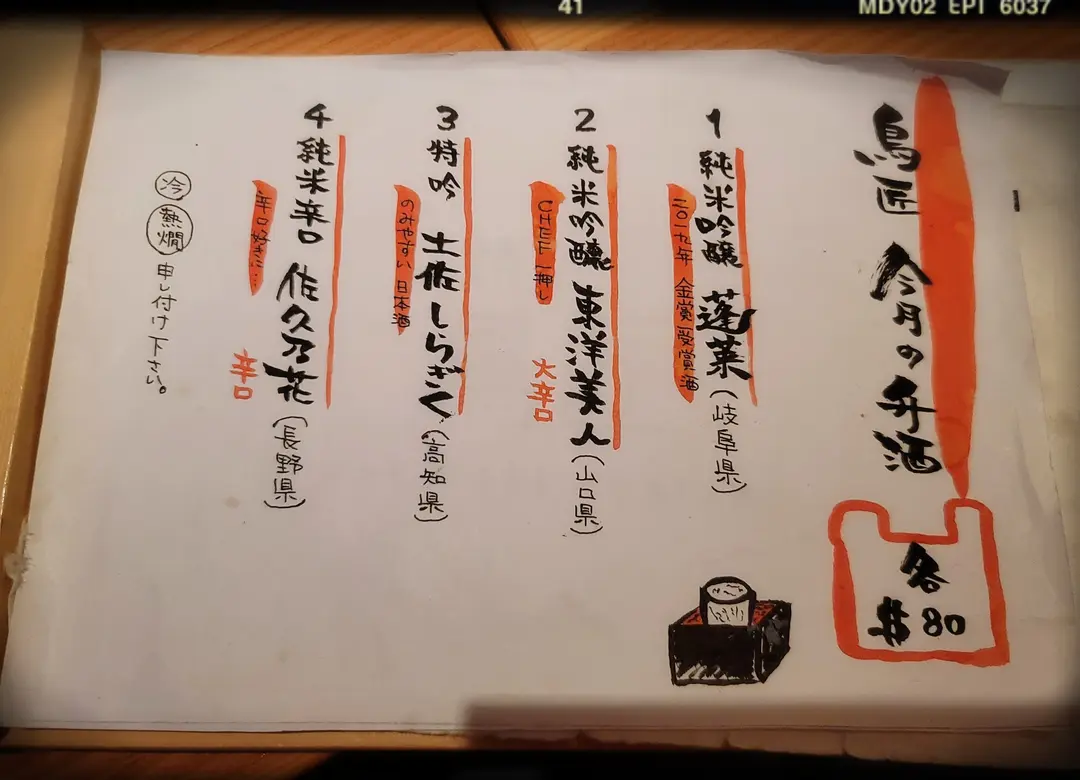 41
MDY02 EPI 6037
鳥匠 今月の升酒
各
$80
1 純米吟醸 蓬莱(岐阜県)
二〇一九年 金賞受賞酒
2 純米吟醸 東洋美人(山口県)
CHEF一押し
大辛口
3 特吟 土佐しらぎく(高知県)
のみやすい 日本酒
4 純米辛口 佐久乃花(長野県)
辛口好きに…
辛口
冷 熱燗 申し付け下さい。